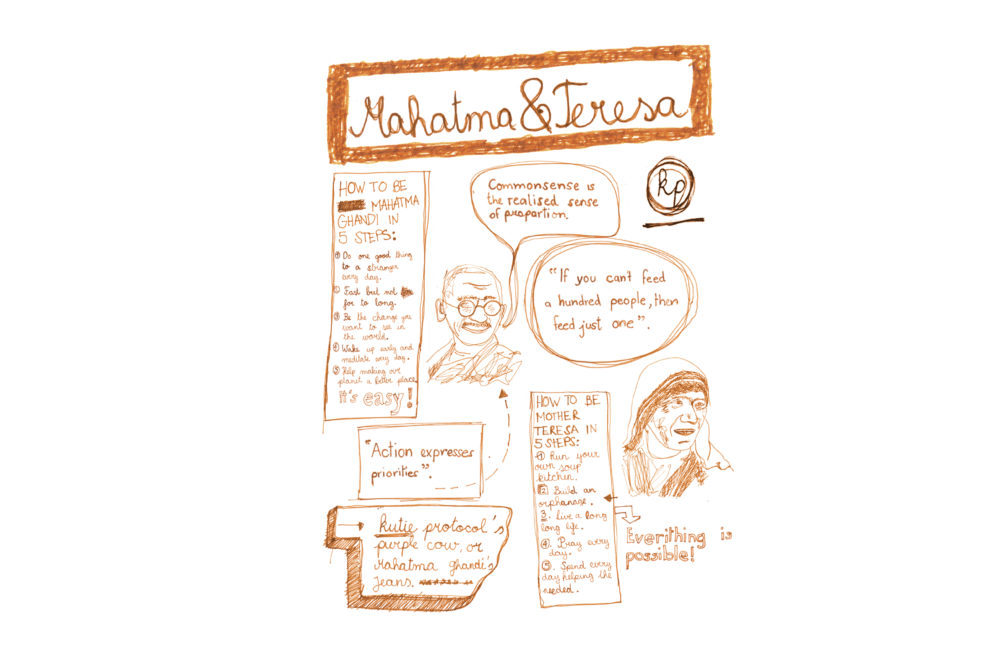 Mahatma & Teresa
HOW TO BE
MAHATMA
GHANDI IN
5 STEPS:
① Do one good thing
to a stranger
evry day.
② Fast but not
for to long.
③ Be the change you
want to see in
the world.
④ Wake up early and
meditate evry day.
⑤ Help making our
planet a better place.
it's easy!
Commonsense is
the realised sense
of proportion.
kp
"If you can't feed
a hundred people, then
feed just one".
"Action expresses
priorities".
kutie protocol's
purple cow, or
Mahatma ghandi's
jeans.
HOW TO BE
MOTHER
TERESA IN
5 STEPS:
① Run your
own soup
kitchen.
2 Build an
orphanage.
3. Live a long
long life.
④. Pray every
day.
⑤. Spend every
day helping the
needed.
Everithing is
possible!